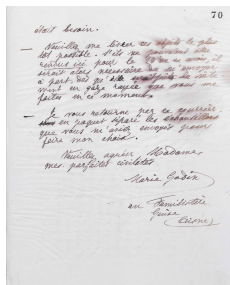 70
était besoin.
— Veuillez me livrer ces objets le plus
tôt possible. S'ils ne pouvaient être
rendus ici pour le 10 de ce mois, il
serait alors nécessaire de m'envoyer
à part, dès qu'elle
ment en gaze rayée que vous me
faites en ce moment.
— Je vous retourne par ce courrier
en paquet séparé les échantillons
que vous m'avez envoyés pour
faire mon choix.
Veuillez agréer Madame
mes parfaites civilités
Marie Godin
au Familistère
Guise
(Aisne)